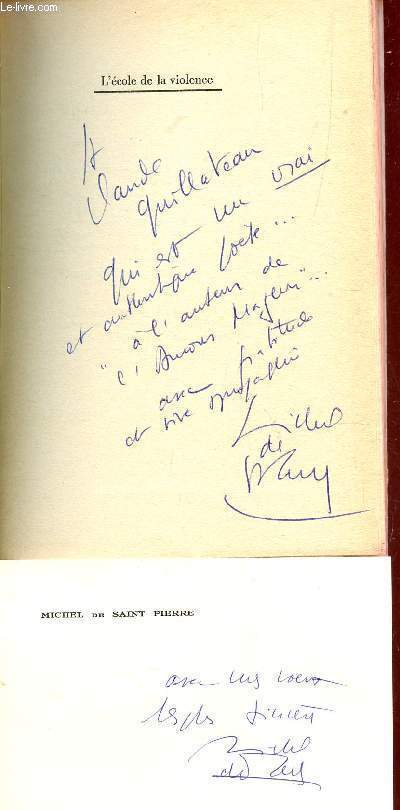 Le-livre.com
L'école de la violence
A
Claude
Guillateau
qui est un vrai
et authentique poète...
à l'auteur de
"l'Amour Majeur"...
avec gratitude
et vive sympathie
Michel
de
St Pierre
MICHEL DE SAINT PIERRE
avec mes voeux
les plus sincères
Michel
de